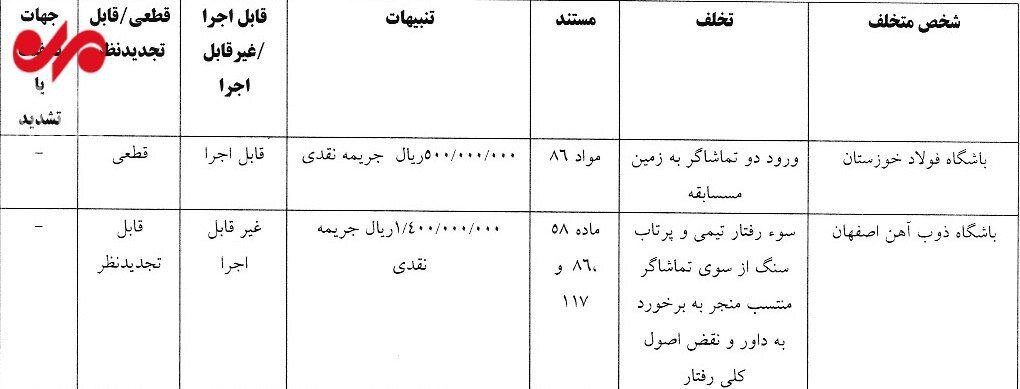 شخص متخلف
تخلف
مستند
تنبیهات
قابل اجرا
/غیرقابل
اجرا
قطعی/قابل
تجدیدنظر
جهات
یا
تشدید
باشگاه فولاد خوزستان
ورود دو تماشاگر به زمین
مسسابقه
مواد ۸۶
۵۰۰/۰۰۰/۰۰۰ریال جریمه نقدی
قابل اجرا
قطعی
-
باشگاه ذوب آهن اصفهان
سوء رفتار تیمی و پرتاب
سنگ از سوی تماشاگر
منتسب منجر به برخورد
به داور و نقض اصول
کلی رفتار
ماده ۵۸
،۸۶ و
۱۱۷
۱/۴۰۰/۰۰۰/۰۰۰ریال جریمه
نقدی
غیر قابل
اجرا
قابل
تجدیدنظر
-